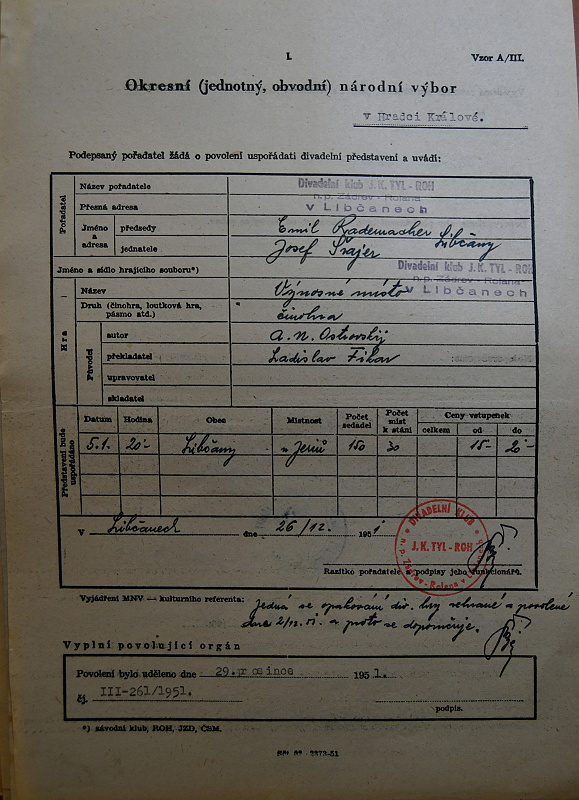 I.
Vzor A/III.
Okresní (jednotný, obvodní) národní výbor
v Hradci Králové.
Podepsaný pořadatel žádá o povolení uspořádati divadelní představení a uvádí:
Pořadatel
Název pořadatele
Divadelní klub J. K. TYL - ROH
n.p. Zádrev - Rolana
Přesná adresa
v Libčanech
Jméno a adresa
předsedy
Emil Rademacher Libčany
jednatele
Josef Šrajer
Jméno a sídlo hrajícího souboru*)
Divadelní klub J. K. TYL - ROH
n.p. Zádrev - Rolana
v Libčanech
Hra
Název
Výnosné místo
Druh (činohra, loutková hra, pásmo atd.)
činohra
Původci
autor
A. N. Ostrovský
překladatel
Ladislav Fikar
upravovatel
skladatel
Představení bude uspořádáno
Datum Hodina Obec Místnost Počet sedadel Počet míst k stání Ceny vstupenek
celkem od do
5.1. 20- Libčany u Jeníů 150 30 15- 20-
V Libčanech dne 26/12. 1951
DIVADELNÍ KLUB
J. K. TYL - ROH
n.p. Zádrev - Rolana v
Razítko pořadatele a podpisy jeho funkcionářů.
Vyjádření MNV — kulturního referenta: Jedná se opakování div. hry sehrané a povolené
dne 2/12. 51. a proto se doporučuje.
Vyplní povolující orgán
Povolení bylo uděleno dne 29.prosince 1951.
čj. III-261/1951.
podpis.
*) závodní klub, ROH, JZD, ČSM.
2373-51